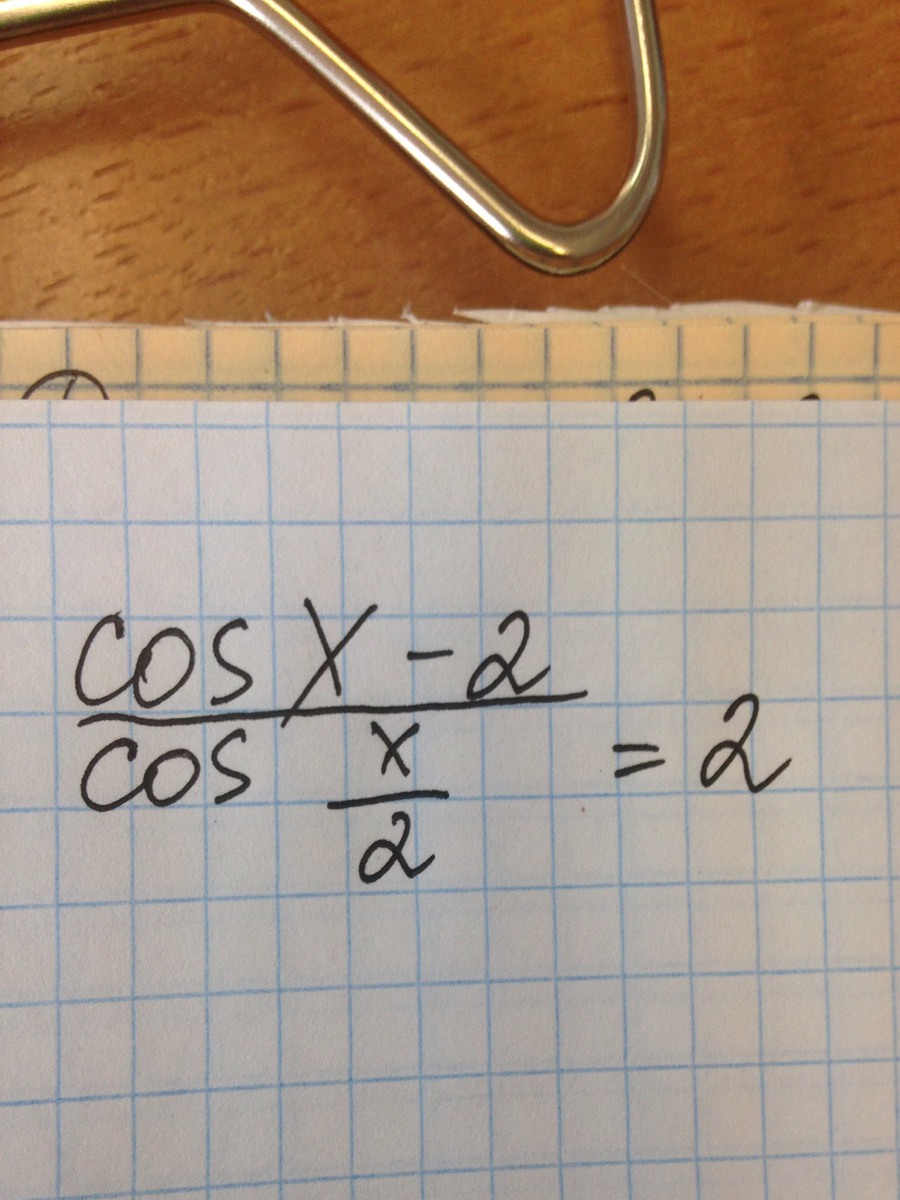 cos x - 2
cos x/2 = 2